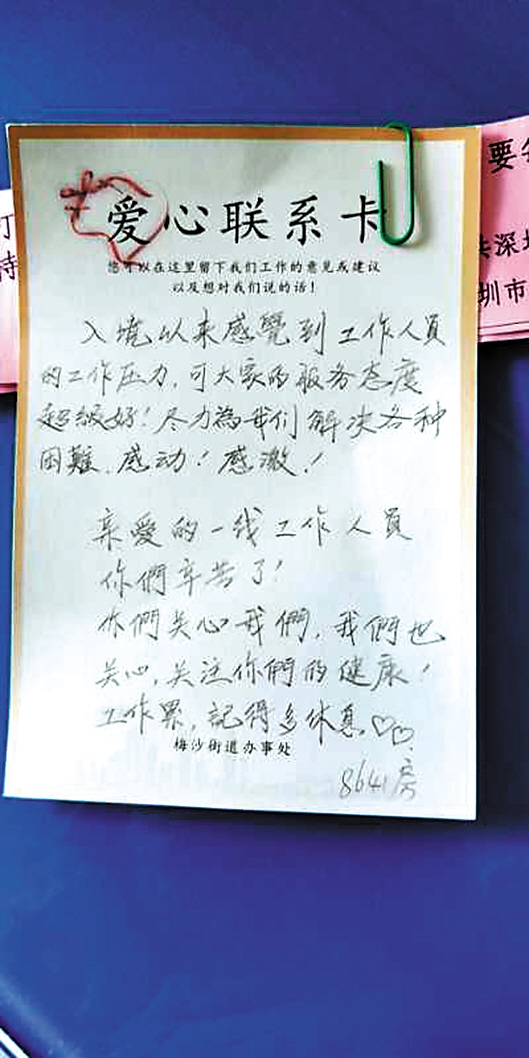 爱心联系卡
您可以在这里留下我们工作的意见或建议
以及想对我们说的话！
入境以来感覺到工作人員
的工作压力，可大家的服务态度
超級好！尽力為我们解决各种
困難，感动！感激！
亲爱的一线工作人員
你們辛苦了！
你們关心我們，我們也
关心，关注你們的健康！
工作累，記得多休息♡♡
梅沙街道办事处
8641房
要
深圳
圳市